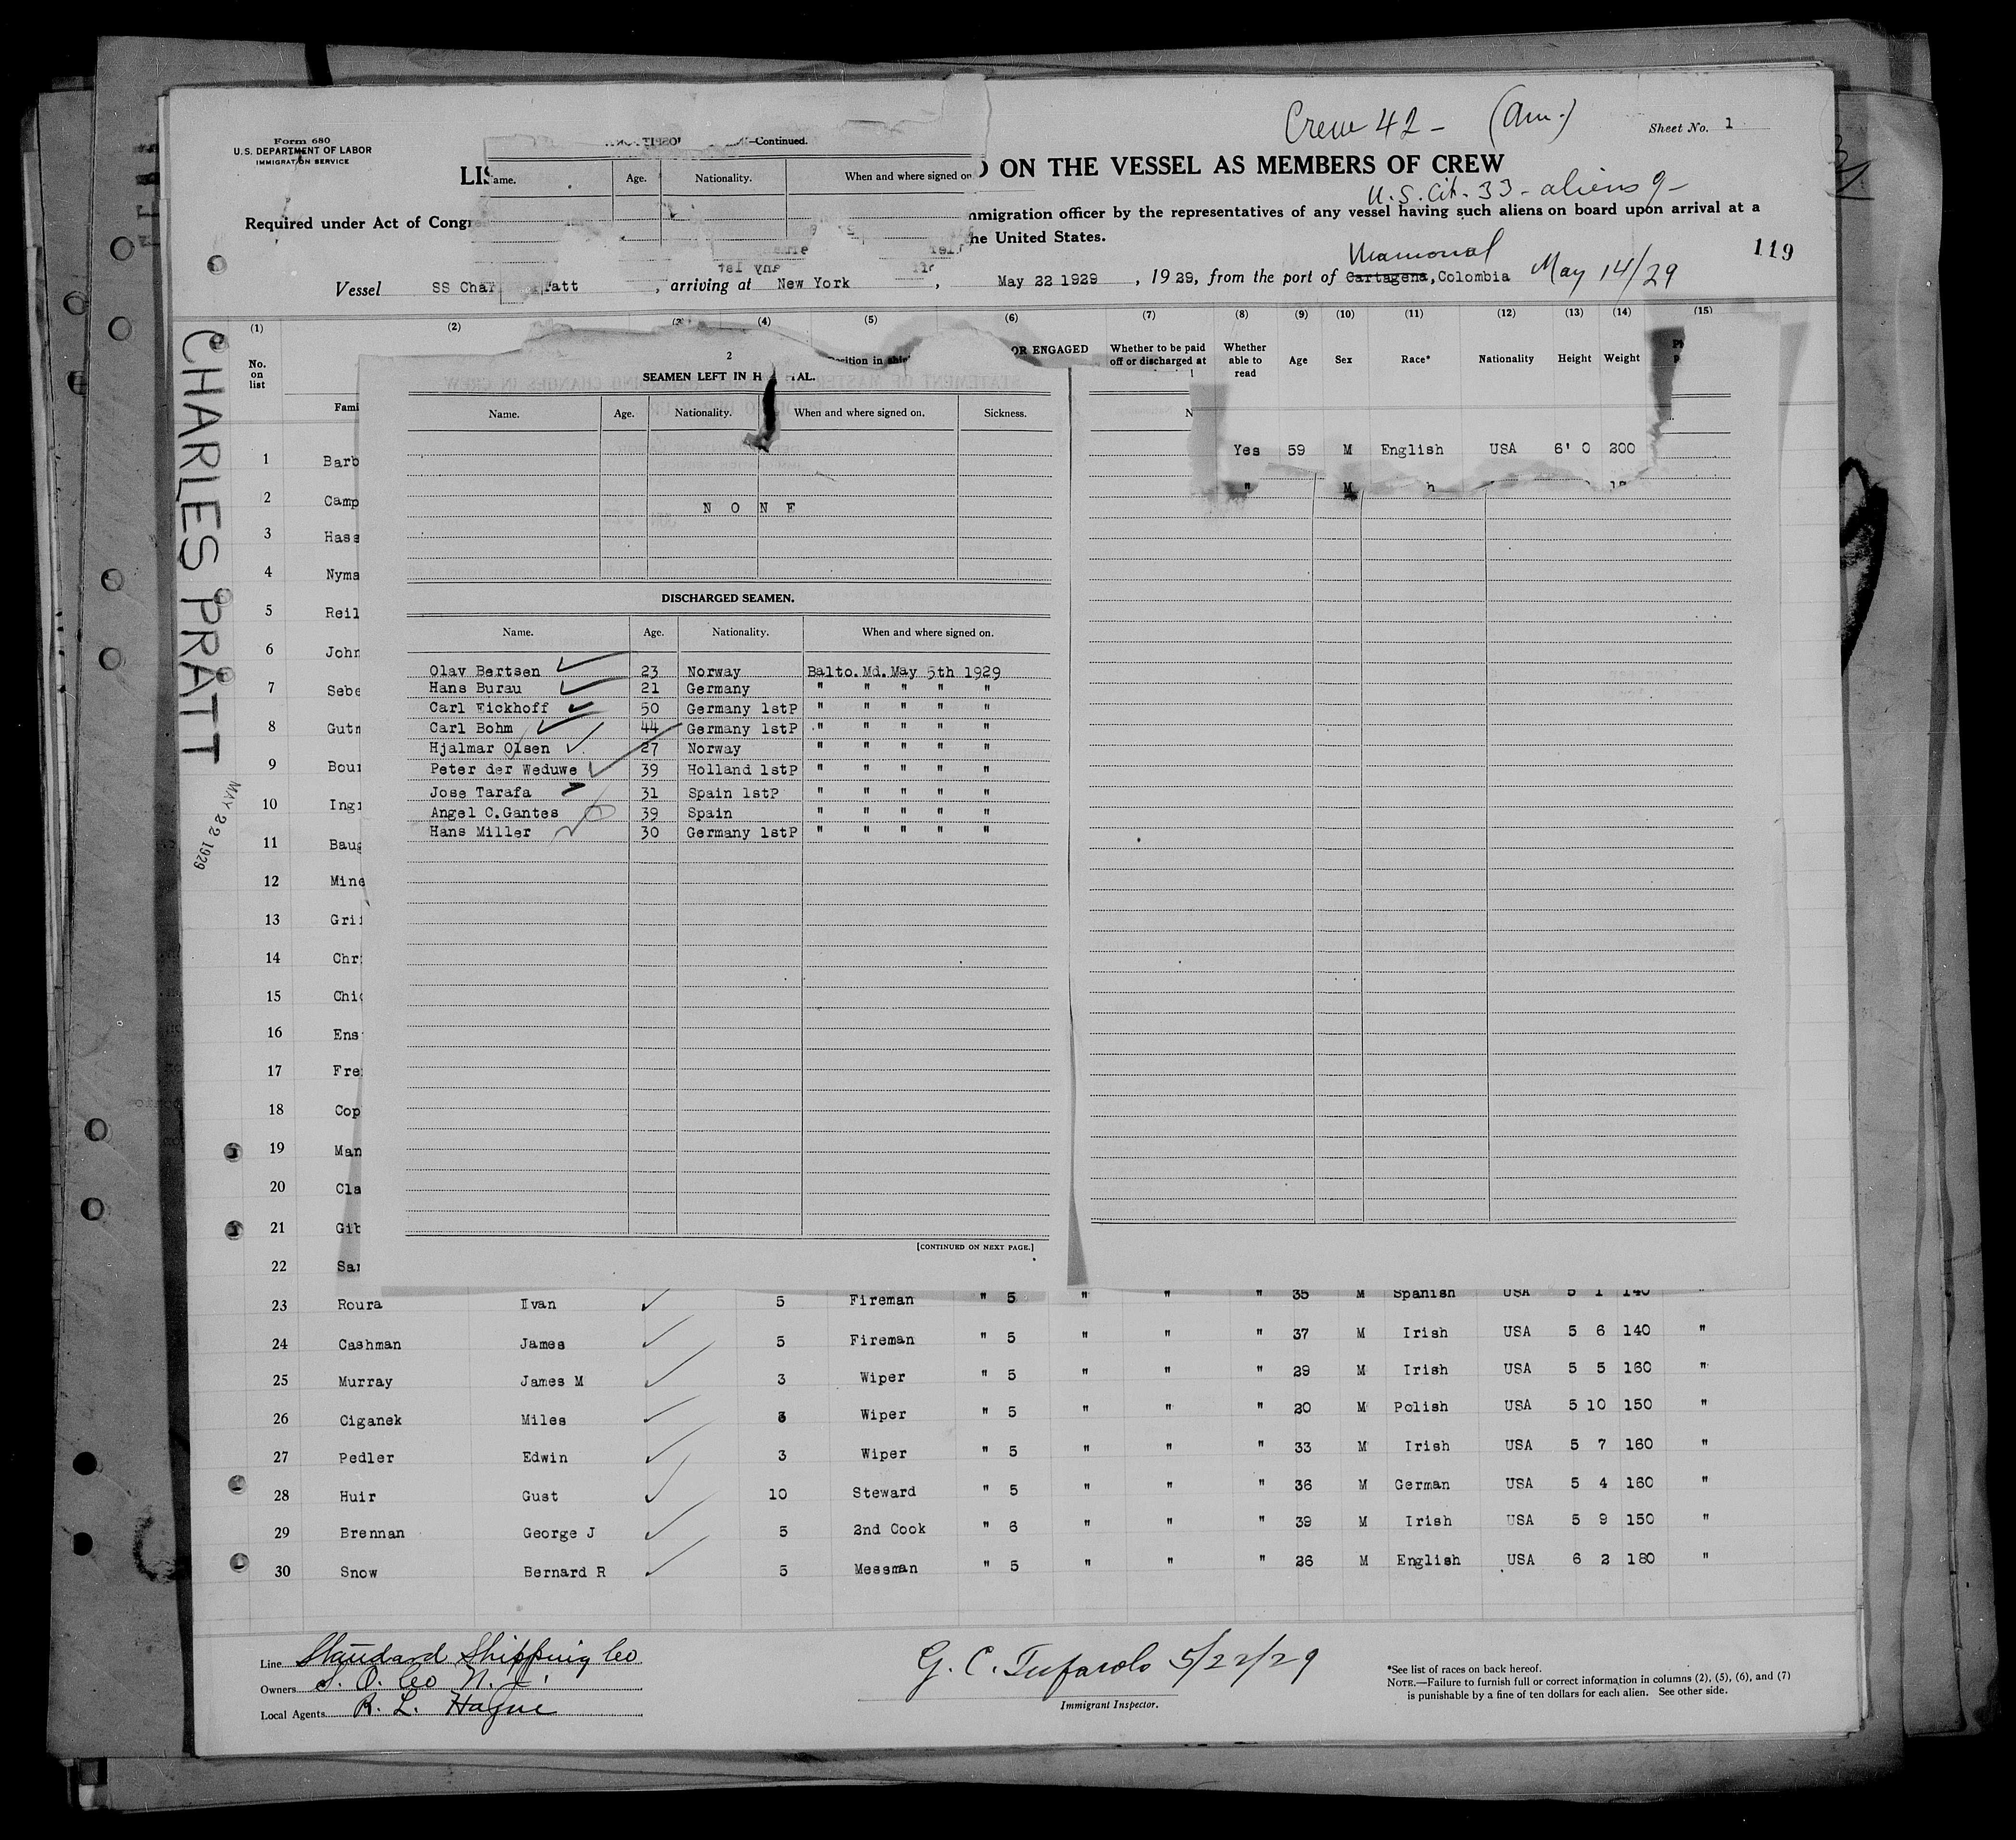 Crew 42 - (Am.)
Sheet No. 1
Form 680
U.S. DEPARTMENT OF LABOR
IMMIGRATION SERVICE
-Continued.
ame. Age. Nationality. When and where signed on
LIS ON THE VESSEL AS MEMBERS OF CREW
U.S. Cit. 33 - aliens 9 -
Required under Act of Congr mmigration officer by the representatives of any vessel having such aliens on board upon arrival at a
he United States.
119
Mamonal
Vessel SS Char ratt , arriving at New York , May 22 1929 , 19 29, from the port of Cartagena, Colombia May 14/29
(1) (2) (4) (5) (6) (7) (8) (9) (10) (11) (12) (13) (14) (15)
No. on list
Fami
OR ENGAGED
Whether to be paid off or discharged at
Whether able to read
Age Sex Race* Nationality Height Weight
CHARLES PRATT
MAY 22 1929
2
SEAMEN LEFT IN H AL.
Name. Age. Nationality. When and where signed on. Sickness.
NONE
DISCHARGED SEAMEN.
Name. Age. Nationality. When and where signed on.
Olav Bertsen 23 Norway Balto. Md. May 5th 1929
Hans Burau 21 Germany " " " " "
Carl Eickhoff 50 Germany 1stP " " " " "
Carl Bohm 44 Germany 1stP " " " " "
Hjalmar Olsen 27 Norway " " " " "
Peter der Weduwe 39 Holland 1stP " " " " "
Jose Tarafa 31 Spain 1stP " " " " "
Angel C.Gantes 39 Spain " " " " "
Hans Miller 30 Germany 1stP " " " " "
[CONTINUED ON NEXT PAGE.]
1 Barb Yes 59 M English USA 6' 0 200
2 Camp " M
3 Hass
4 Nyma
5 Reil
6 John
7 Sebe
8 Gutm
9 Bour
10 Ingr
11 Baug
12 Mine
13 Gri
14 Chr
15 Chi
16 Ens
17 Fre
18 Cop
19 Man
20 Cla
21 Gib
22 Sar
23 Roura Ivan 5 Fireman " 5 " " " 35 M Spanish USA 5 1 140 "
24 Cashman James 5 Fireman " 5 " " " 37 M Irish USA 5 6 140 "
25 Murray James M 3 Wiper " 5 " " " 29 M Irish USA 5 5 160 "
26 Ciganek Miles 3 Wiper " 5 " " " 20 M Polish USA 5 10 150 "
27 Pedler Edwin 3 Wiper " 5 " " " 33 M Irish USA 5 7 160 "
28 Huir Gust 10 Steward " 5 " " " 36 M German USA 5 4 160 "
29 Brennan George J 5 2nd Cook " 6 " " " 39 M Irish USA 5 9 150 "
30 Snow Bernard R 5 Messman " 5 " " " 26 M English USA 6 2 180 "
Line Standard Shipping Co
Owners S. O. Co N. J.
Local Agents R. L. Hague
G. C. Tufarolo 5/22/29
Immigrant Inspector.
*See list of races on back hereof.
NOTE.—Failure to furnish full or correct information in columns (2), (5), (6), and (7)
is punishable by a fine of ten dollars for each alien. See other side.